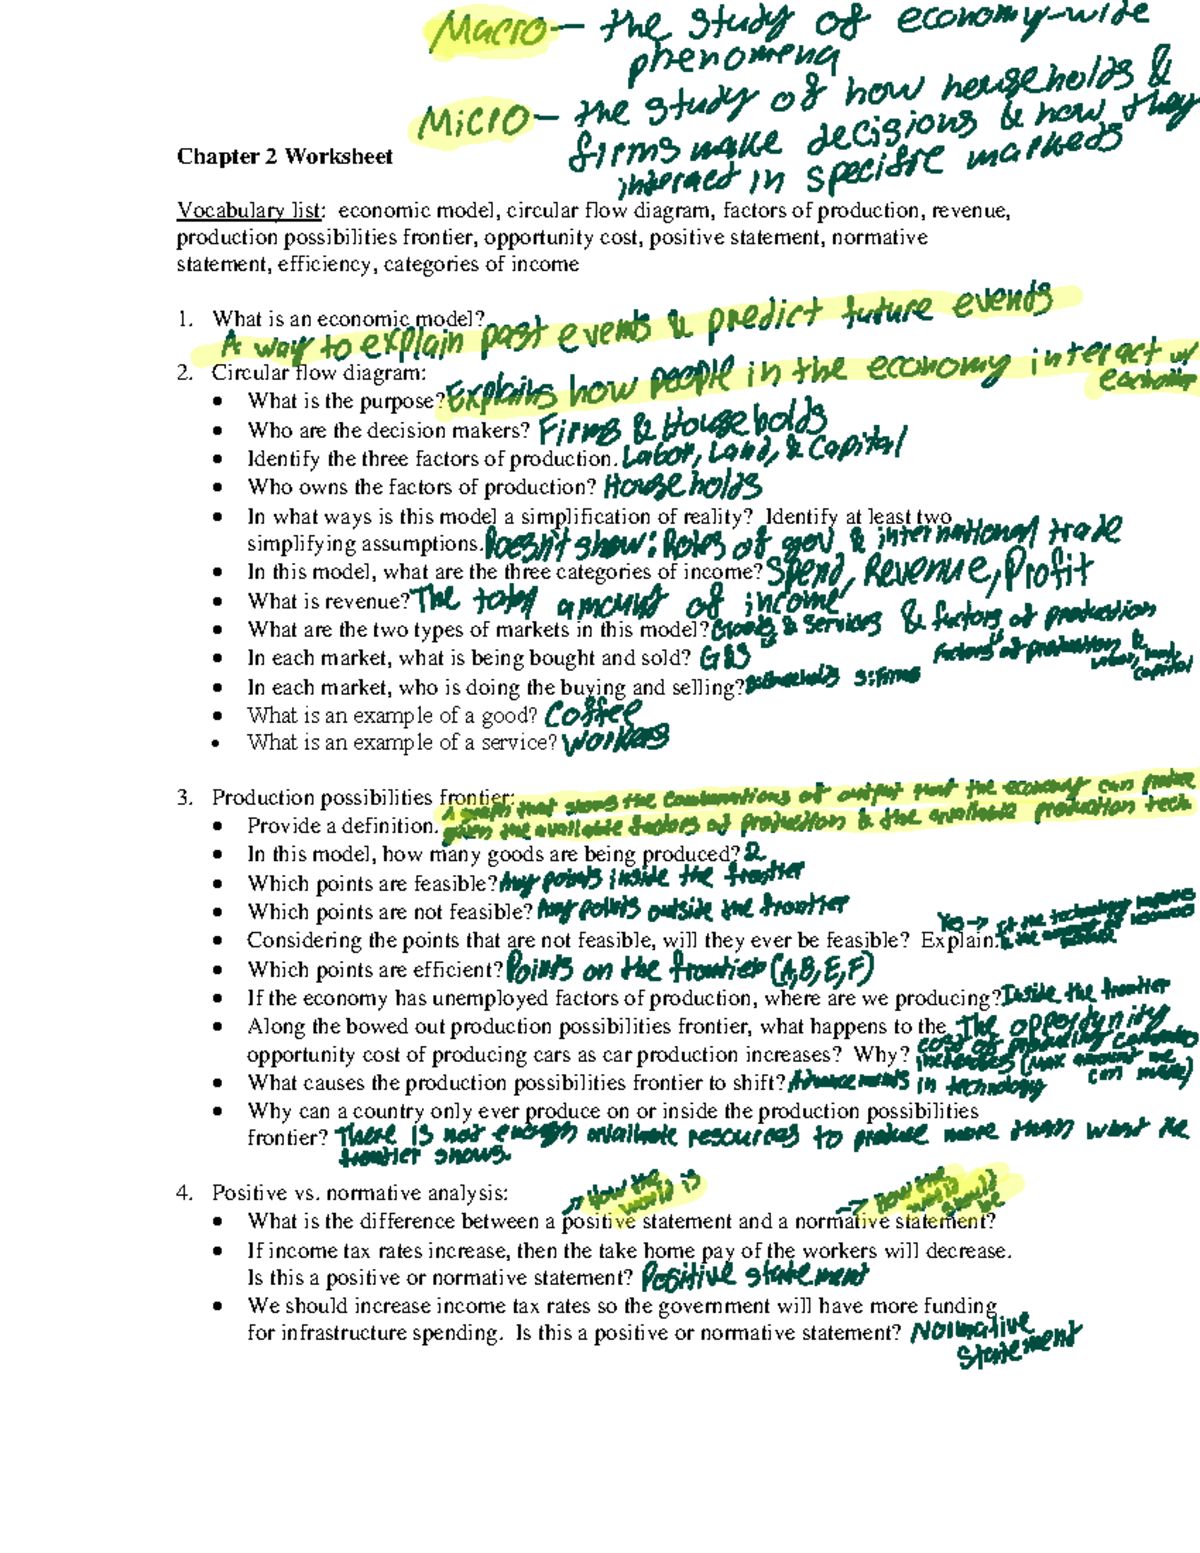 Macro — the study of economy-wide
phenomena
Micro — the study of how households &
firms make decisions & how they
interact in specific markets
Chapter 2 Worksheet
Vocabulary list: economic model, circular flow diagram, factors of production, revenue,
production possibilities frontier, opportunity cost, positive statement, normative
statement, efficiency, categories of income
1. What is an economic model?
A way to explain past events & predict future events
2. Circular flow diagram:
• What is the purpose? Explains how people in the economy interact w/
eachother
• Who are the decision makers? Firms & Households
• Identify the three factors of production. Labor, Land, & Capital
• Who owns the factors of production? Households
• In what ways is this model a simplification of reality? Identify at least two
simplifying assumptions. Doesn't show: Roles of gov & international trade
• In this model, what are the three categories of income? Spend, Revenue, Profit
• What is revenue? The total amount of income
• What are the two types of markets in this model? Goods & Services & factors of production
• In each market, what is being bought and sold? G&S factors of production & Labor, land, capital
• In each market, who is doing the buying and selling? Households & firms
• What is an example of a good? Coffee
• What is an example of a service? Workers
3. Production possibilities frontier:
A graph that shows the combinations of output that the economy can produce
• Provide a definition. given the available factors of production & the available production tech.
• In this model, how many goods are being produced? 2
• Which points are feasible? Any points inside the frontier
• Which points are not feasible? Any points outside the frontier
• Considering the points that are not feasible, will they ever be feasible? Explain. Yes → if the technology improves
• Which points are efficient? Points on the frontier (A,B,E,F)
• If the economy has unemployed factors of production, where are we producing? Inside the frontier
• Along the bowed out production possibilities frontier, what happens to the The opportunity
opportunity cost of producing cars as car production increases? Why? cost of producing
increases (max amount we can make)
• What causes the production possibilities frontier to shift? Advancements in technology
• Why can a country only ever produce on or inside the production possibilities
frontier? There is not enough available resources to produce more than what the
frontier shows.
4. Positive vs. normative analysis:
→ How the world is
→ how the world should be
• What is the difference between a positive statement and a normative statement?
• If income tax rates increase, then the take home pay of the workers will decrease.
Is this a positive or normative statement? Positive statement
• We should increase income tax rates so the government will have more funding
for infrastructure spending. Is this a positive or normative statement? Normative
Statement